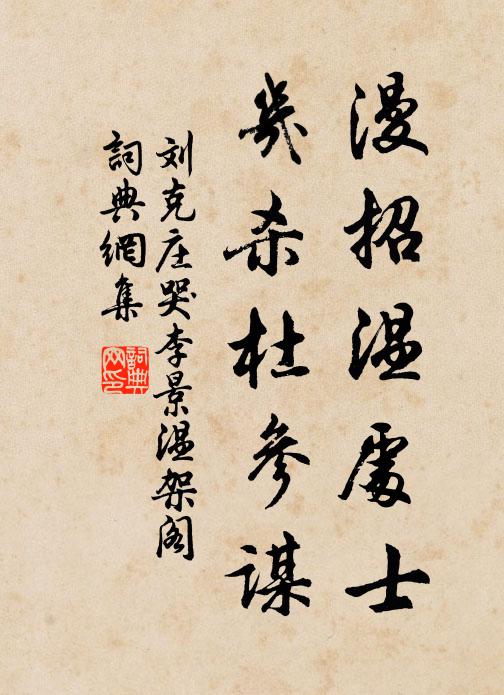 漫招温處士
幾杀杜參謀
刘克庄哭李景温架阁
詞典網集
詞典
网印